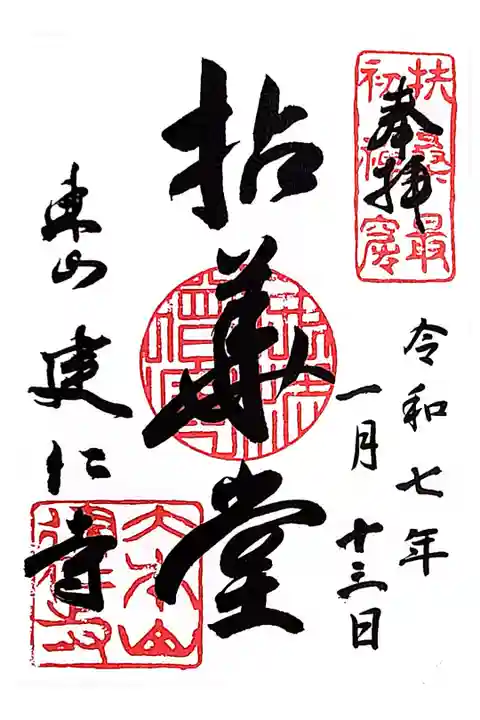 扶桑最
初禅窟
奉拝
令和七年
一月十三日
拈華堂
東山建仁寺
大本山
建仁禅寺